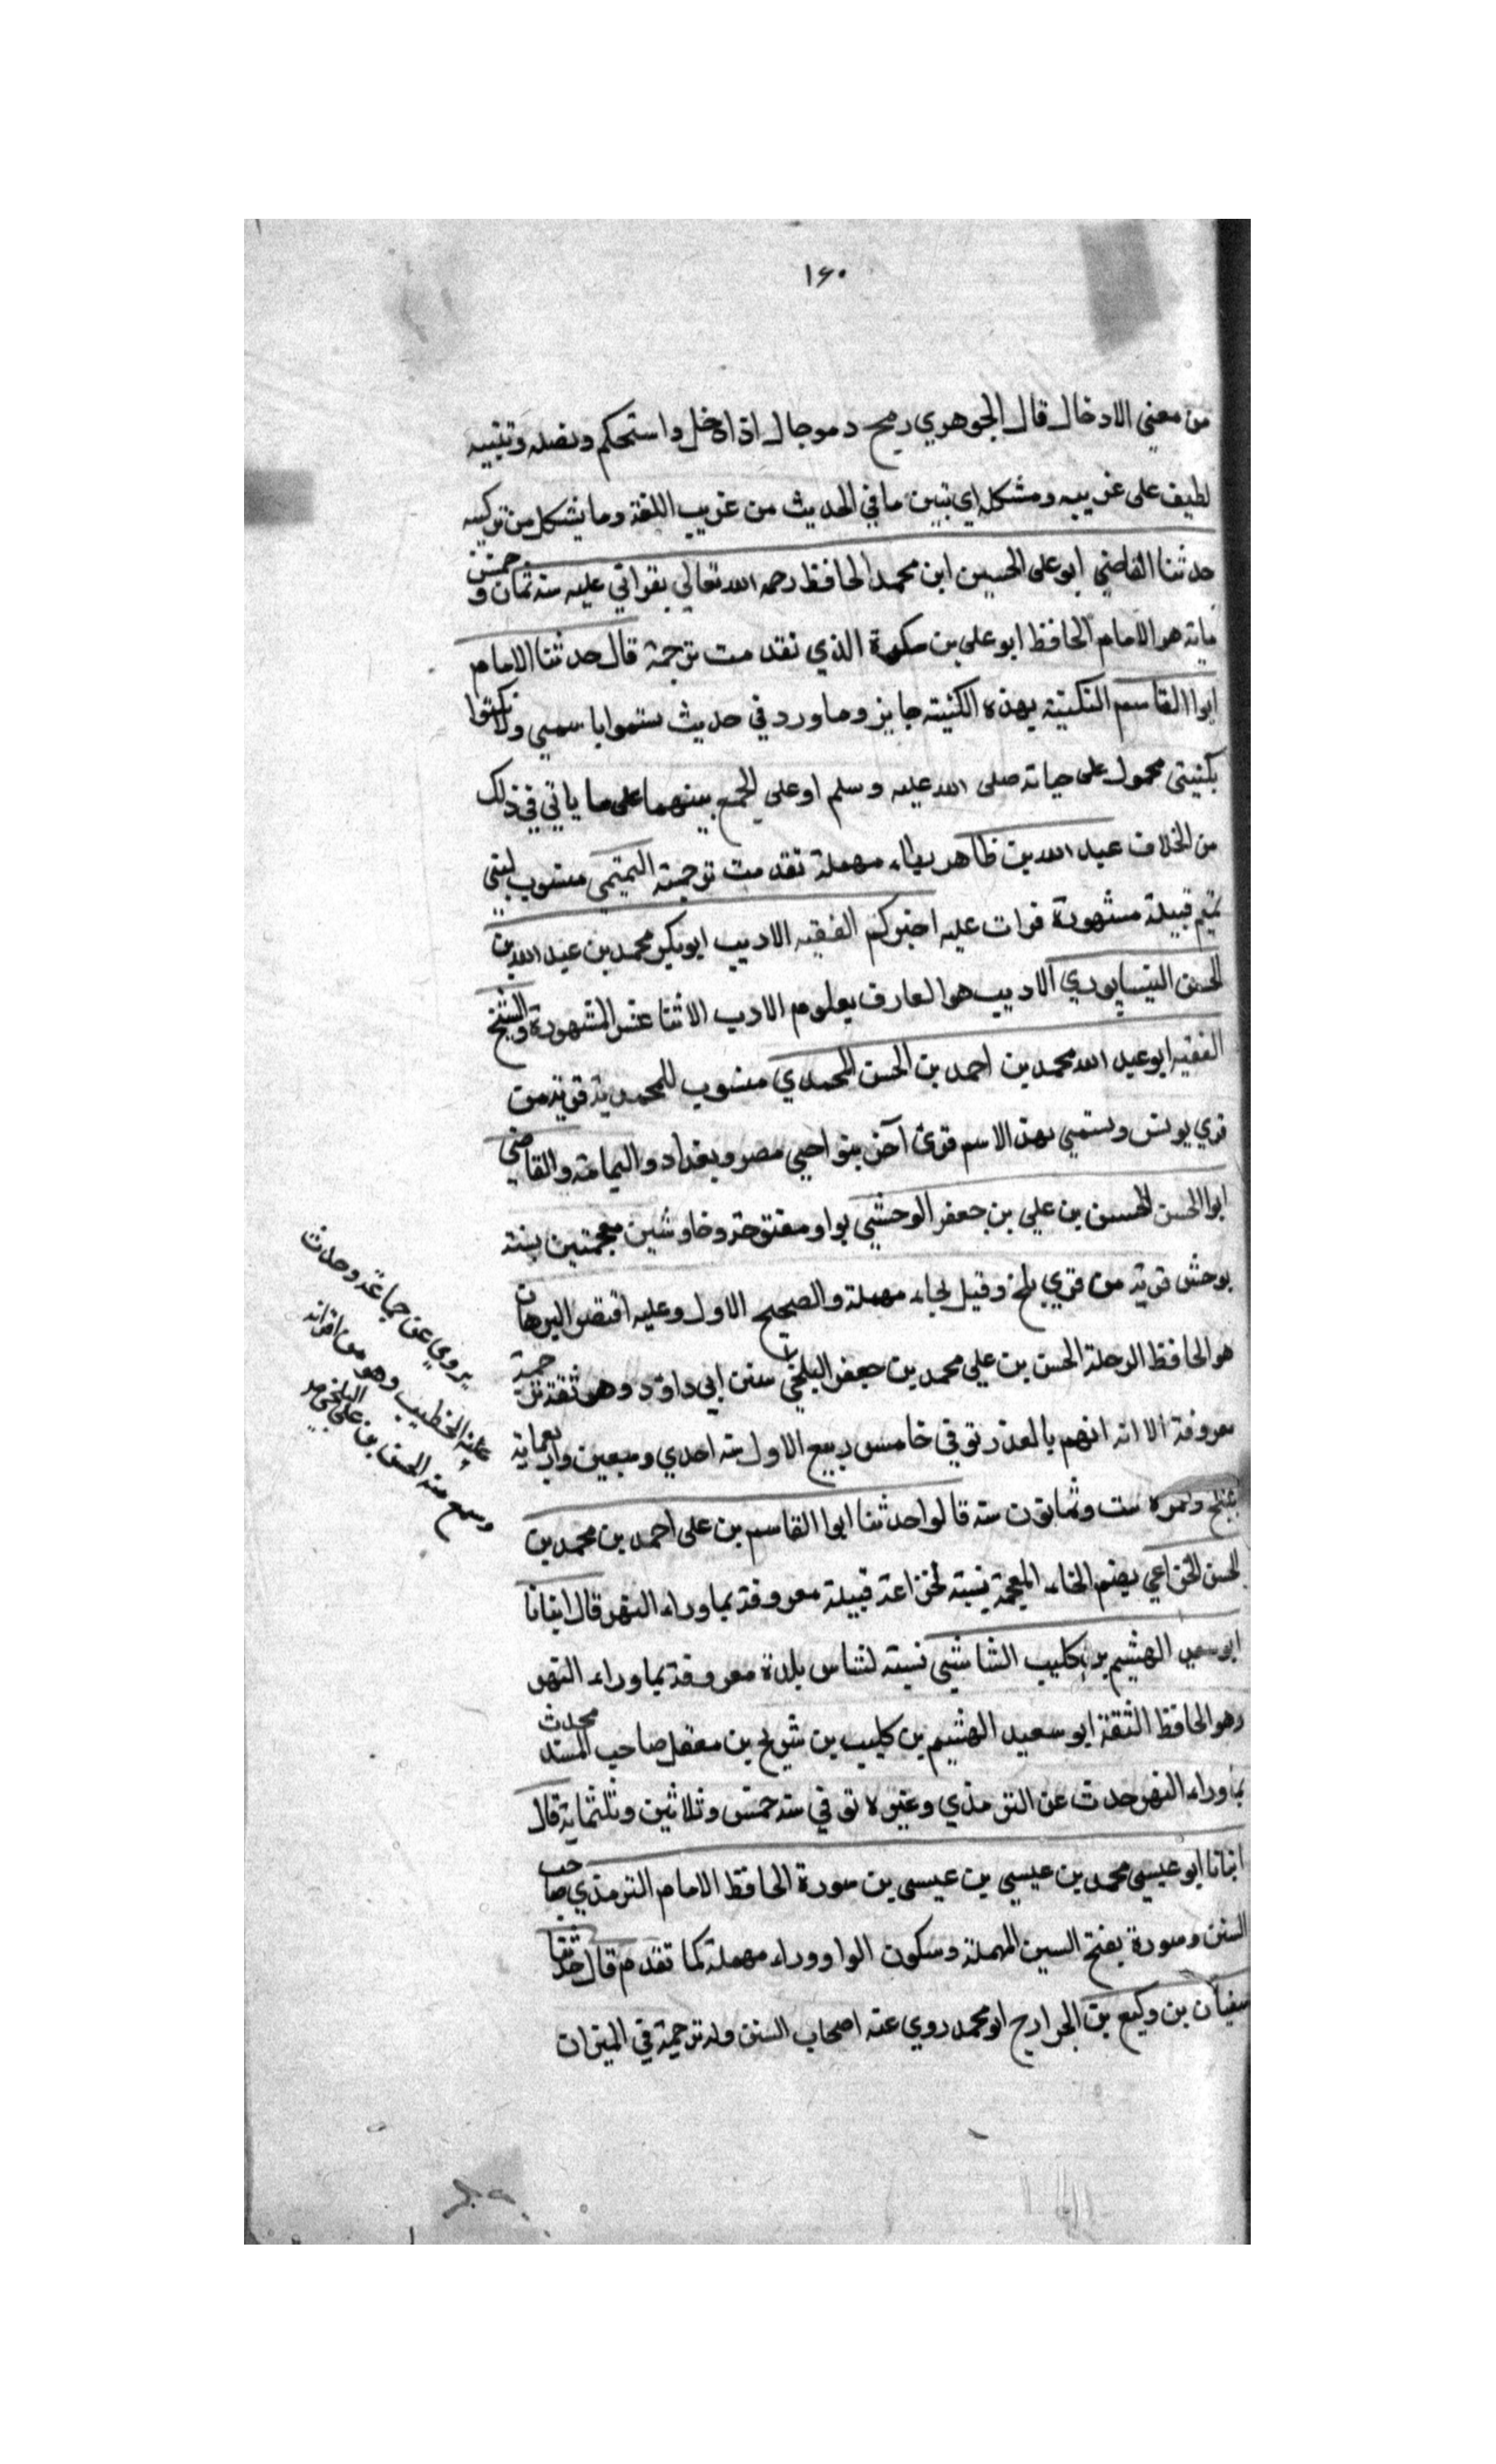 ١٦٠
من معني الادخال قال الجوهري رمح دموجال اذا دخل واستحكم ونصله وتنبيه
لطيف على غريبه ومشكله اي تبين ما في الحديث من غريب اللغة وما يشكل من تركيبه
حدثنا القاضي ابو على الحسين ابن محمد الحافظ رحمه الله تعالي بقراتي عليه سنة ثمان وخمس
ماية هو الامام الحافظ ابو على بن سكرة الذي تقدمت ترجمة قال حدثنا الامام
ابوا القاسم التكنية بهذه الكنية جايز وما ورد في حديث ستموا باسمي ولا تكنوا
بكنيتي محمول على حياته صلى الله عليه وسلم او على الجمع بينهما على ما ياتي في ذلك
من الخلاف عبد الله بن طاهر بطاء مهملة تقدمت ترجمته التميمي منسوب لبني
تميم قبيلة مشهورة قرات عليه اخبركم الفقيه الاديب ابو بكر محمد بن عبد الله بن
الحسن النيسابوري الاديب هو العارف بعلوم الادب الاثنا عشر المشهورة والشيخ
الفقيه ابو عبد الله محمد بن احمد بن الحسن المحمدي منسوب للمحمدية قرية من
قري يونس ويستمي بهذا الاسم قرى آخر بنواحي مصر وبغداد واليمامة والقاضي
ابوا الحسن الحسن بن علي بن جعفر الوحشي بواو مفتوحة وخا وشين معجمتين نسبته
بوحش قرية من قري بلخ وقيل بحاء مهملة والصحيح الاول وعليه اقتصر البرهان
هو الحافظ الرحلة الحسن بن علي محمد بن جعفر البلخي سنن ابي داود وهو ثقة ترجمة
معروفة الا انه اتهم بالعذر توفي خامس ربيع الاول سنة احدي وسبعين واربعماية
ببلخ وعمره ست وثمانون سنة قالوا حدثنا ابوا القاسم بن على احمد بن محمد بن
الحسن الخزاعي بضم الخاء المعجمة نسبته لخزاعة قبيلة معروفة بما وراء النهر قال انبانا
ابو سعيد الهثيم بن كليب الشاشي نسبته لشاس بلدة معروفة بما وراء النهر
وهو الحافظ الثقة ابو سعيد الهثيم بن كليب بن شريح بن معقل صاحب المسند محدث
بما وراء النهر حدث عن الترمذي وغيره توفي سنة خمس وثلاثين وثلثماية قال
انبانا ابو عيسي محمد بن عيسي بن عيسى بن سورة الحافظ الامام الترمذي صاحب
السنن وسورة بفتح السين المهملة وسكون الواو وراء مهملة كما تقدم قال حدثنا
سفيان بن وكيع بن الجراح ابو محمد روي عنه اصحاب السنن وله ترجمة في الميزان
يروي عن جماعة وحدث
عنه الخطيب وهو من اقرانه
وسمع منه الحسن بن على البلخي